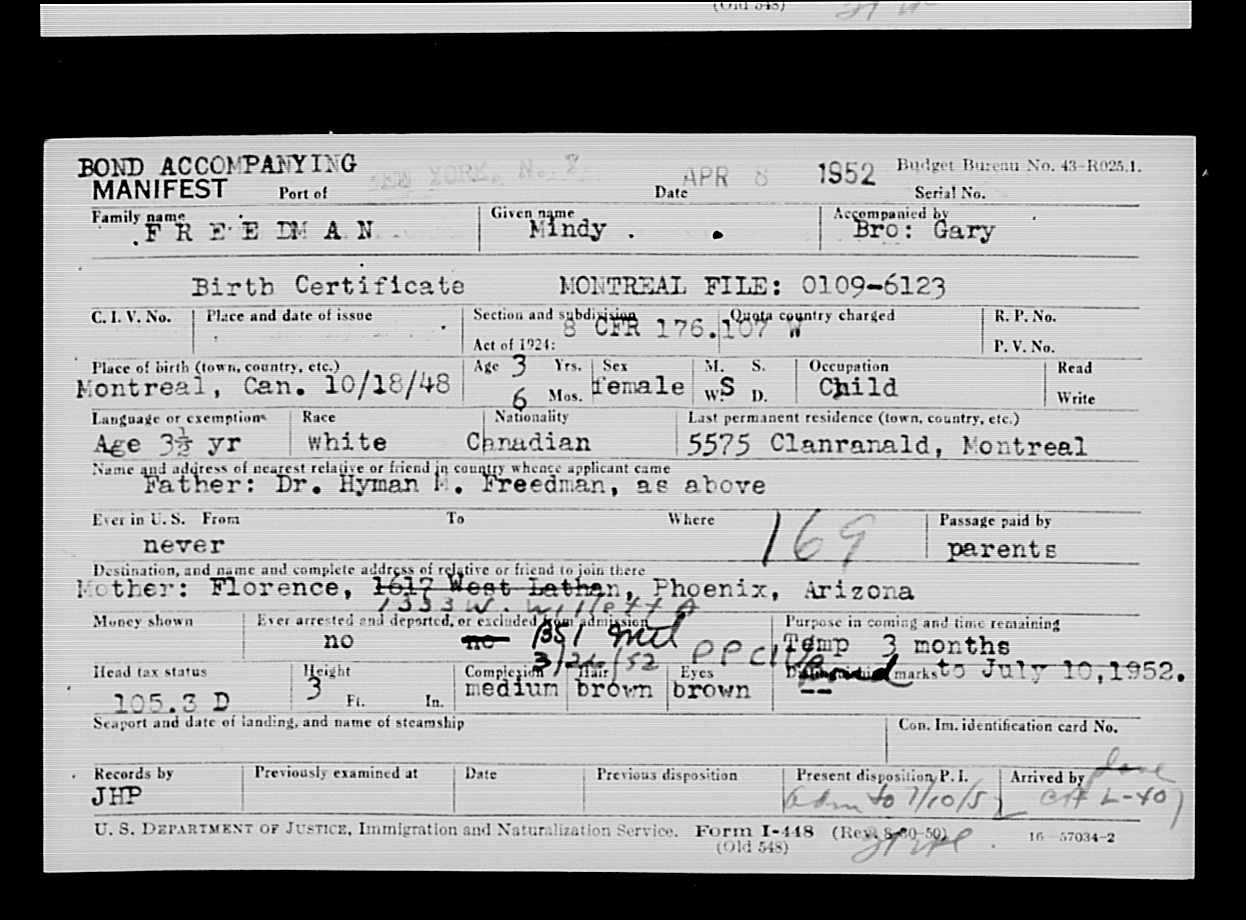 (Old 548)
BOND ACCOMPANYING
MANIFEST Port of NEW YORK, N. Y. Date APR 8 1952 Budget Bureau No. 43-R025.1.
Serial No.
Family name Given name Accompanied by
FREEDMAN Mindy . Bro: Gary
Birth Certificate MONTREAL FILE: 0109-6123
C. I. V. No. Place and date of issue Section and subdivision Quota country charged R. P. No.
8 CFR 176.107 W
Act of 1924: P. V. No.
Place of birth (town, country, etc.) Age 3 Yrs. Sex M. S. Occupation Read
Montreal, Can. 10/18/48 6 Mos. female W. S D. Child Write
Language or exemptions Race Nationality Last permanent residence (town, country, etc.)
Age 3½ yr white Canadian 5575 Clanranald, Montreal
Name and address of nearest relative or friend in country whence applicant came
Father: Dr. Hyman M. Freedman, as above
Ever in U. S. From To Where 169 Passage paid by
never parents
Destination, and name and complete address of relative or friend to join there
Mother: Florence, 1617 West Lathan, Phoenix, Arizona
1333 W. Willetta
Money shown Ever arrested and deported, or excluded from admission Purpose in coming and time remaining
no no 1351 Temp 3 months
3/26/52 to July 10,1952.
Head tax status Height Complexion Hair Eyes Distinguishing marks
105.3 D 3 Ft. In. medium brown brown --
Seaport and date of landing, and name of steamship Con. Im. identification card No.
Records by Previously examined at Date Previous disposition Present disposition, P. I. Arrived by
JHP adm to 7/10/52
U. S. DEPARTMENT OF JUSTICE, Immigration and Naturalization Service. Form I-448 (Rev. 8-30-50) 16—57034-2
(Old 548)